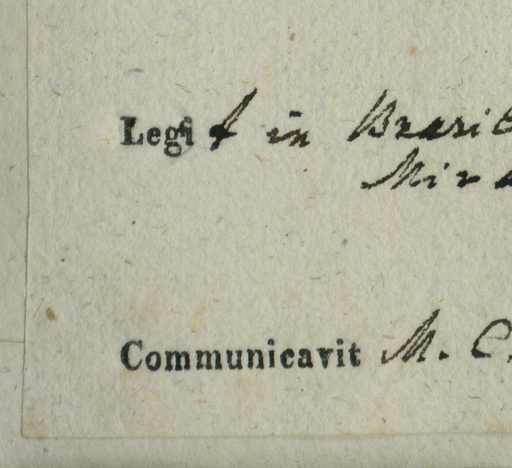 Legit in Brasil
Mir
Communicavit M. C.